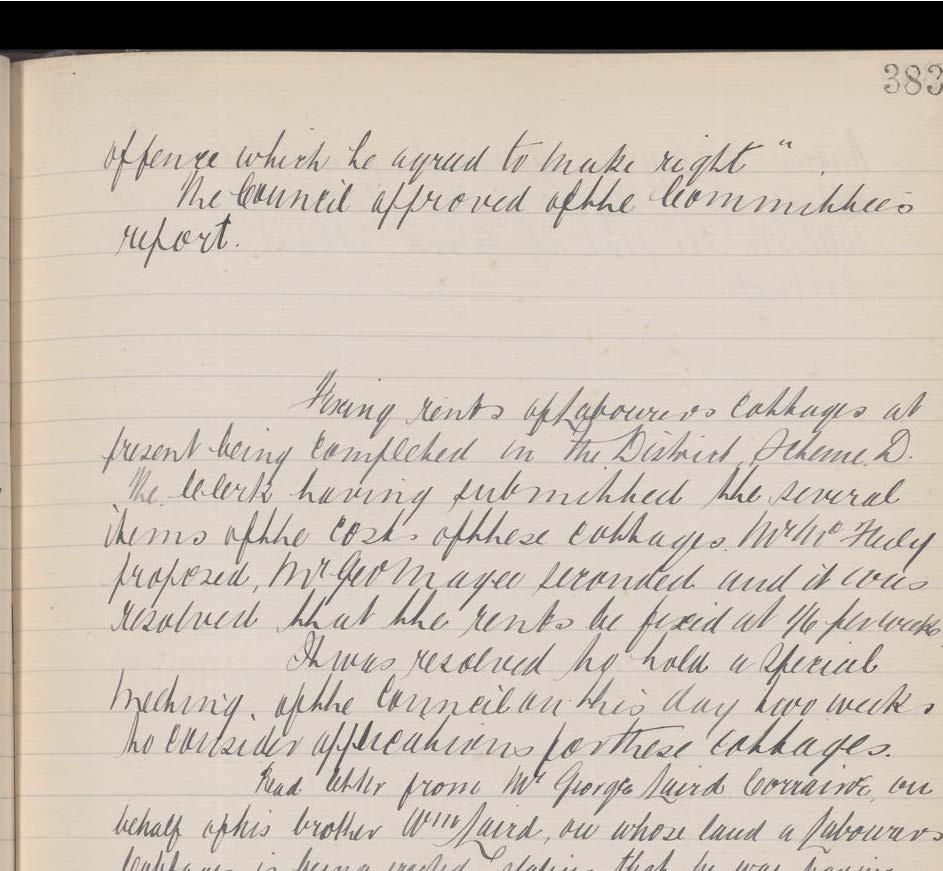 383
offence which he agreed to make right "
The Council approved of the Committees
report.
Fixing rents of Labourers Cottages at
present being completed in the District, Scheme D.
The Clerk having submitted the several
items of the cost of these cottages. Mr Mc Feely
proposed, Mr Geo Magee seconded and it was
resolved that the rents be fixed at 1/6 per week.
It was resolved to hold a Special
Meeting of the Council on this day two weeks
to consider applications for these cottages.
Read letter from Mr George Laird on
behalf of his brother Wm Laird, on whose land a Labourers
Cottage is being erected, stating that he was having